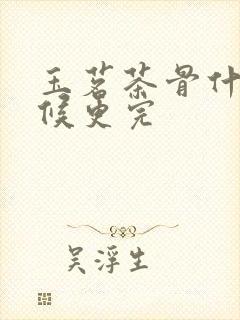 玉茗茶骨什
候更完
吴浮生